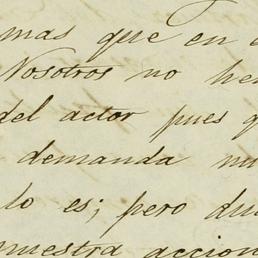 mas que en
Nosotros no he
del actor pues q
demanda
lo es; pero du
nuestra accion